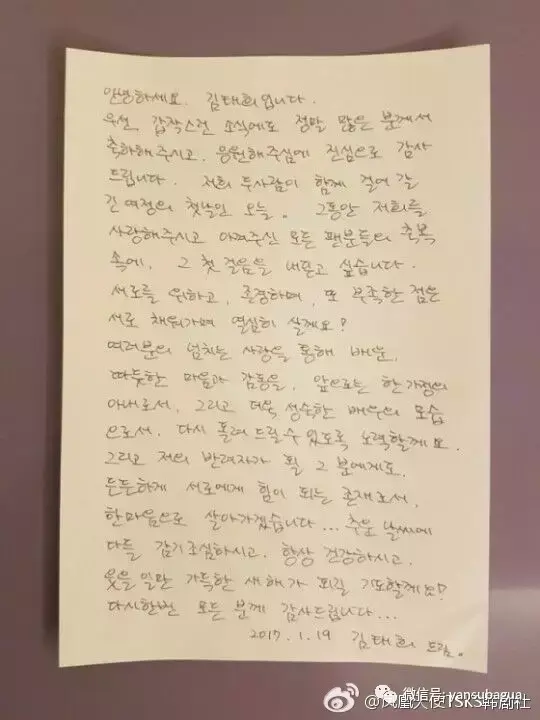 안녕하세요. 김태희입니다.
우선, 갑작스런 소식에도 정말 많은 분께서
축하해주시고, 응원해주심에 진심으로 감사
드립니다. 저희 두사람이 함께 걸어 갈
긴 여정의 첫날인 오늘. 그동안 저희를
사랑해주시고 아껴주신 모든 팬분들의 축복
속에, 그 첫 걸음을 내딛고 싶습니다.
서로를 위하고, 존경하며, 또 부족한 점은
서로 채워가며 열심히 살께요!
여러분의 넘치는 사랑을 통해 배운,
따뜻한 마음과 감동을, 앞으로는 한 가정의
아내로서, 그리고 더욱 성숙한 배우의 모습
으로서, 다시 돌려 드릴 수 있도록 노력할께요.
그리고 저의 반려자가 될 그 분에게도,
든든하게 서로에게 힘이 되는 존재로서,
한마음으로 살아가겠습니다... 추운 날씨에
다들 감기 조심하시고, 항상 건강하시고,
웃을 일만 가득한 새해가 되길 기도할께요!
다시한번 모든 분께 감사드립니다...
2017. 1. 19 김태희 드림.
微信号: yansubagua
@凤凰天使TSKS韩剧社